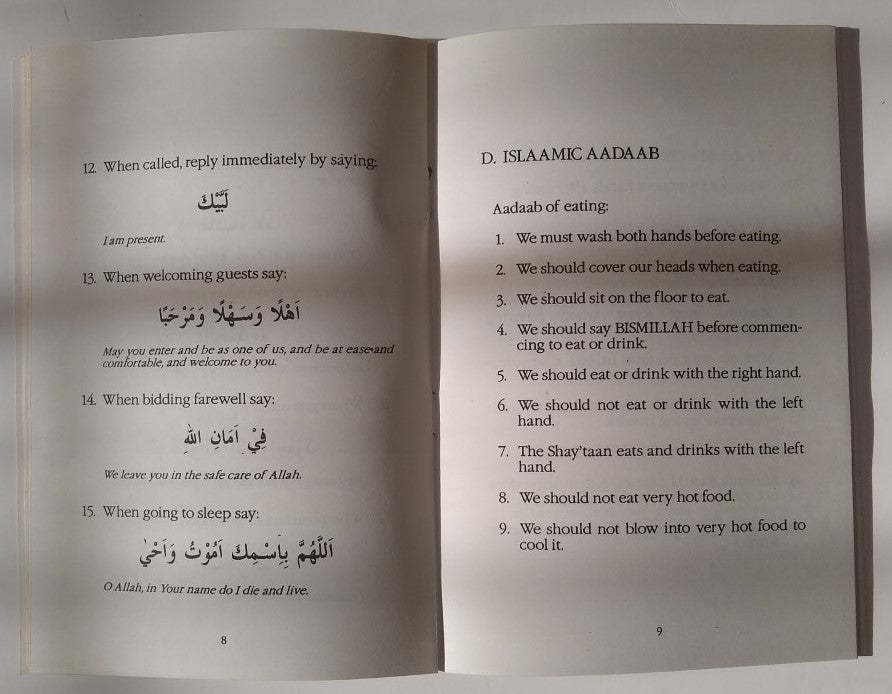 12. When called, reply immediately by saying:
لَبَّيْكَ
I am present.
13. When welcoming guests say:
اَهْلًا وَسَهْلًا وَمَرْحَبًا
May you enter and be as one of us, and be at ease and
comfortable, and welcome to you.
14. When bidding farewell say:
فِيْ اَمَانِ اللّٰهِ
We leave you in the safe care of Allah.
15. When going to sleep say:
اَللّٰهُمَّ بِاِسْمِكَ اَمُوْتُ وَاَحْيٰ
O Allah, in Your name do I die and live.
8
D. ISLAAMIC AADAAB
Aadaab of eating:
1. We must wash both hands before eating.
2. We should cover our heads when eating.
3. We should sit on the floor to eat.
4. We should say BISMILLAH before commen-
cing to eat or drink.
5. We should eat or drink with the right hand.
6. We should not eat or drink with the left
hand.
7. The Shay'taan eats and drinks with the left
hand.
8. We should not eat very hot food.
9. We should not blow into very hot food to
cool it.
9